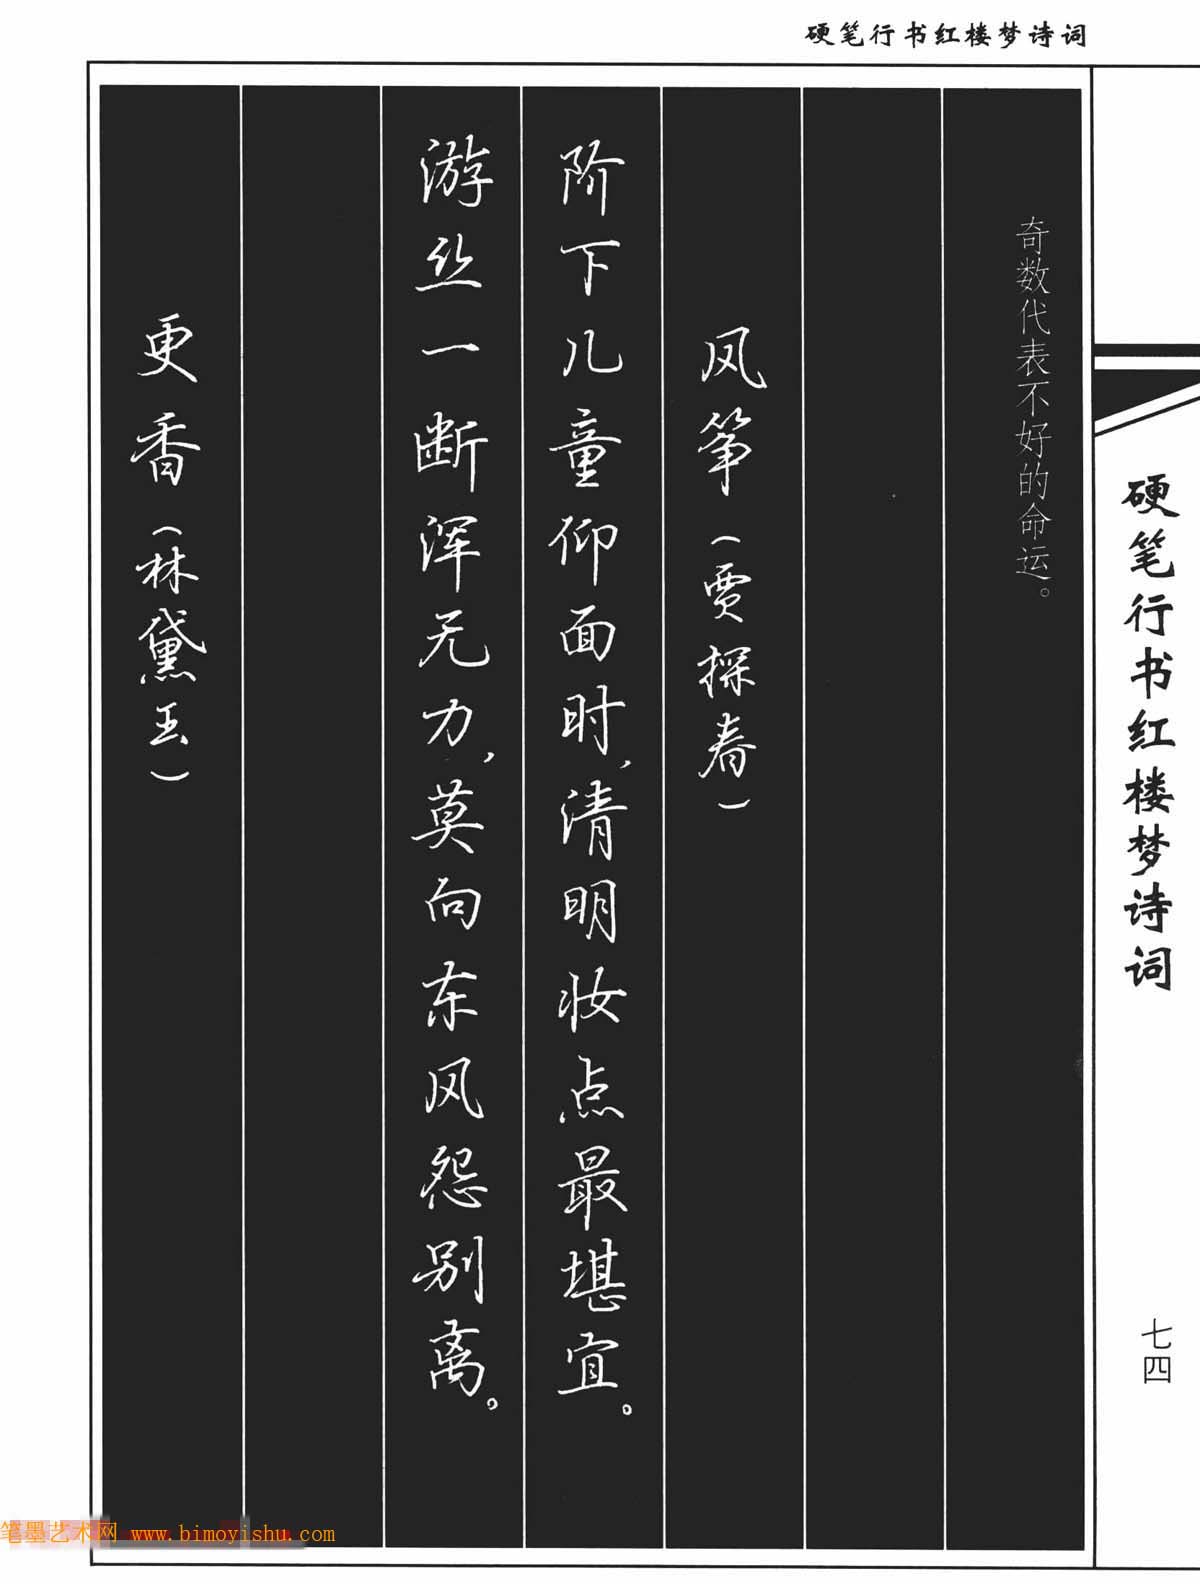 硬笔行书红楼梦诗词
硬笔行书红楼梦诗词
七四
奇数代表不好的命运。
风筝（贾探春）
阶下儿童仰面时，清明妆点最堪宜。
游丝一断浑无力，莫向东风怨别离。
更香（林黛玉）
笔墨艺术网 www.bimoyishu.com